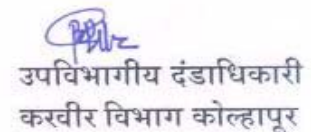 उपविभागीय दंडाधिकारी
करवीर विभाग कोल्हापूर